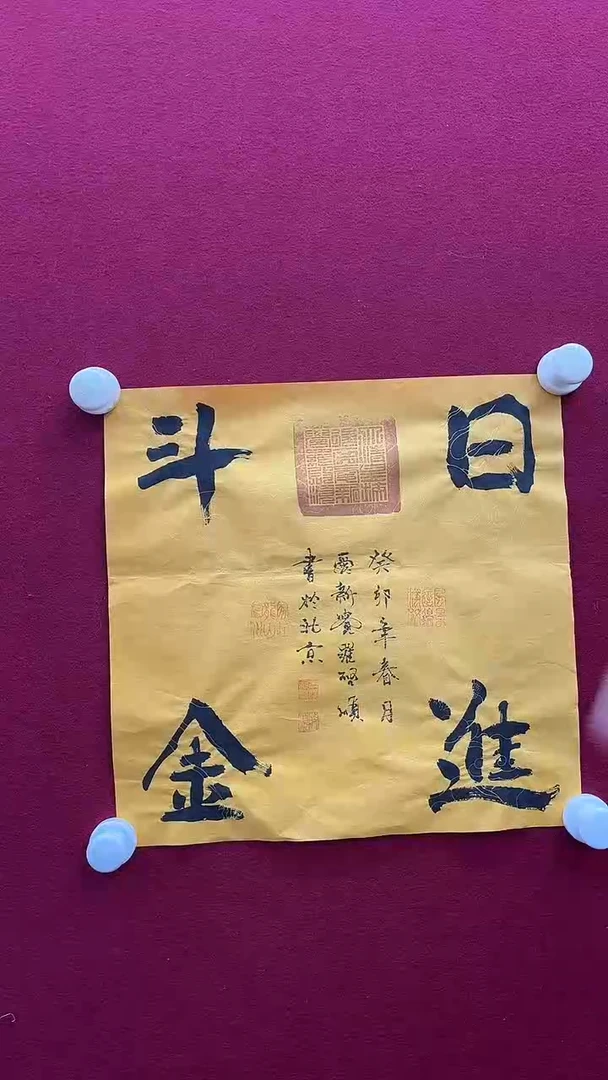 日進
斗金
癸卯年春月
愛新覺羅
書於北京